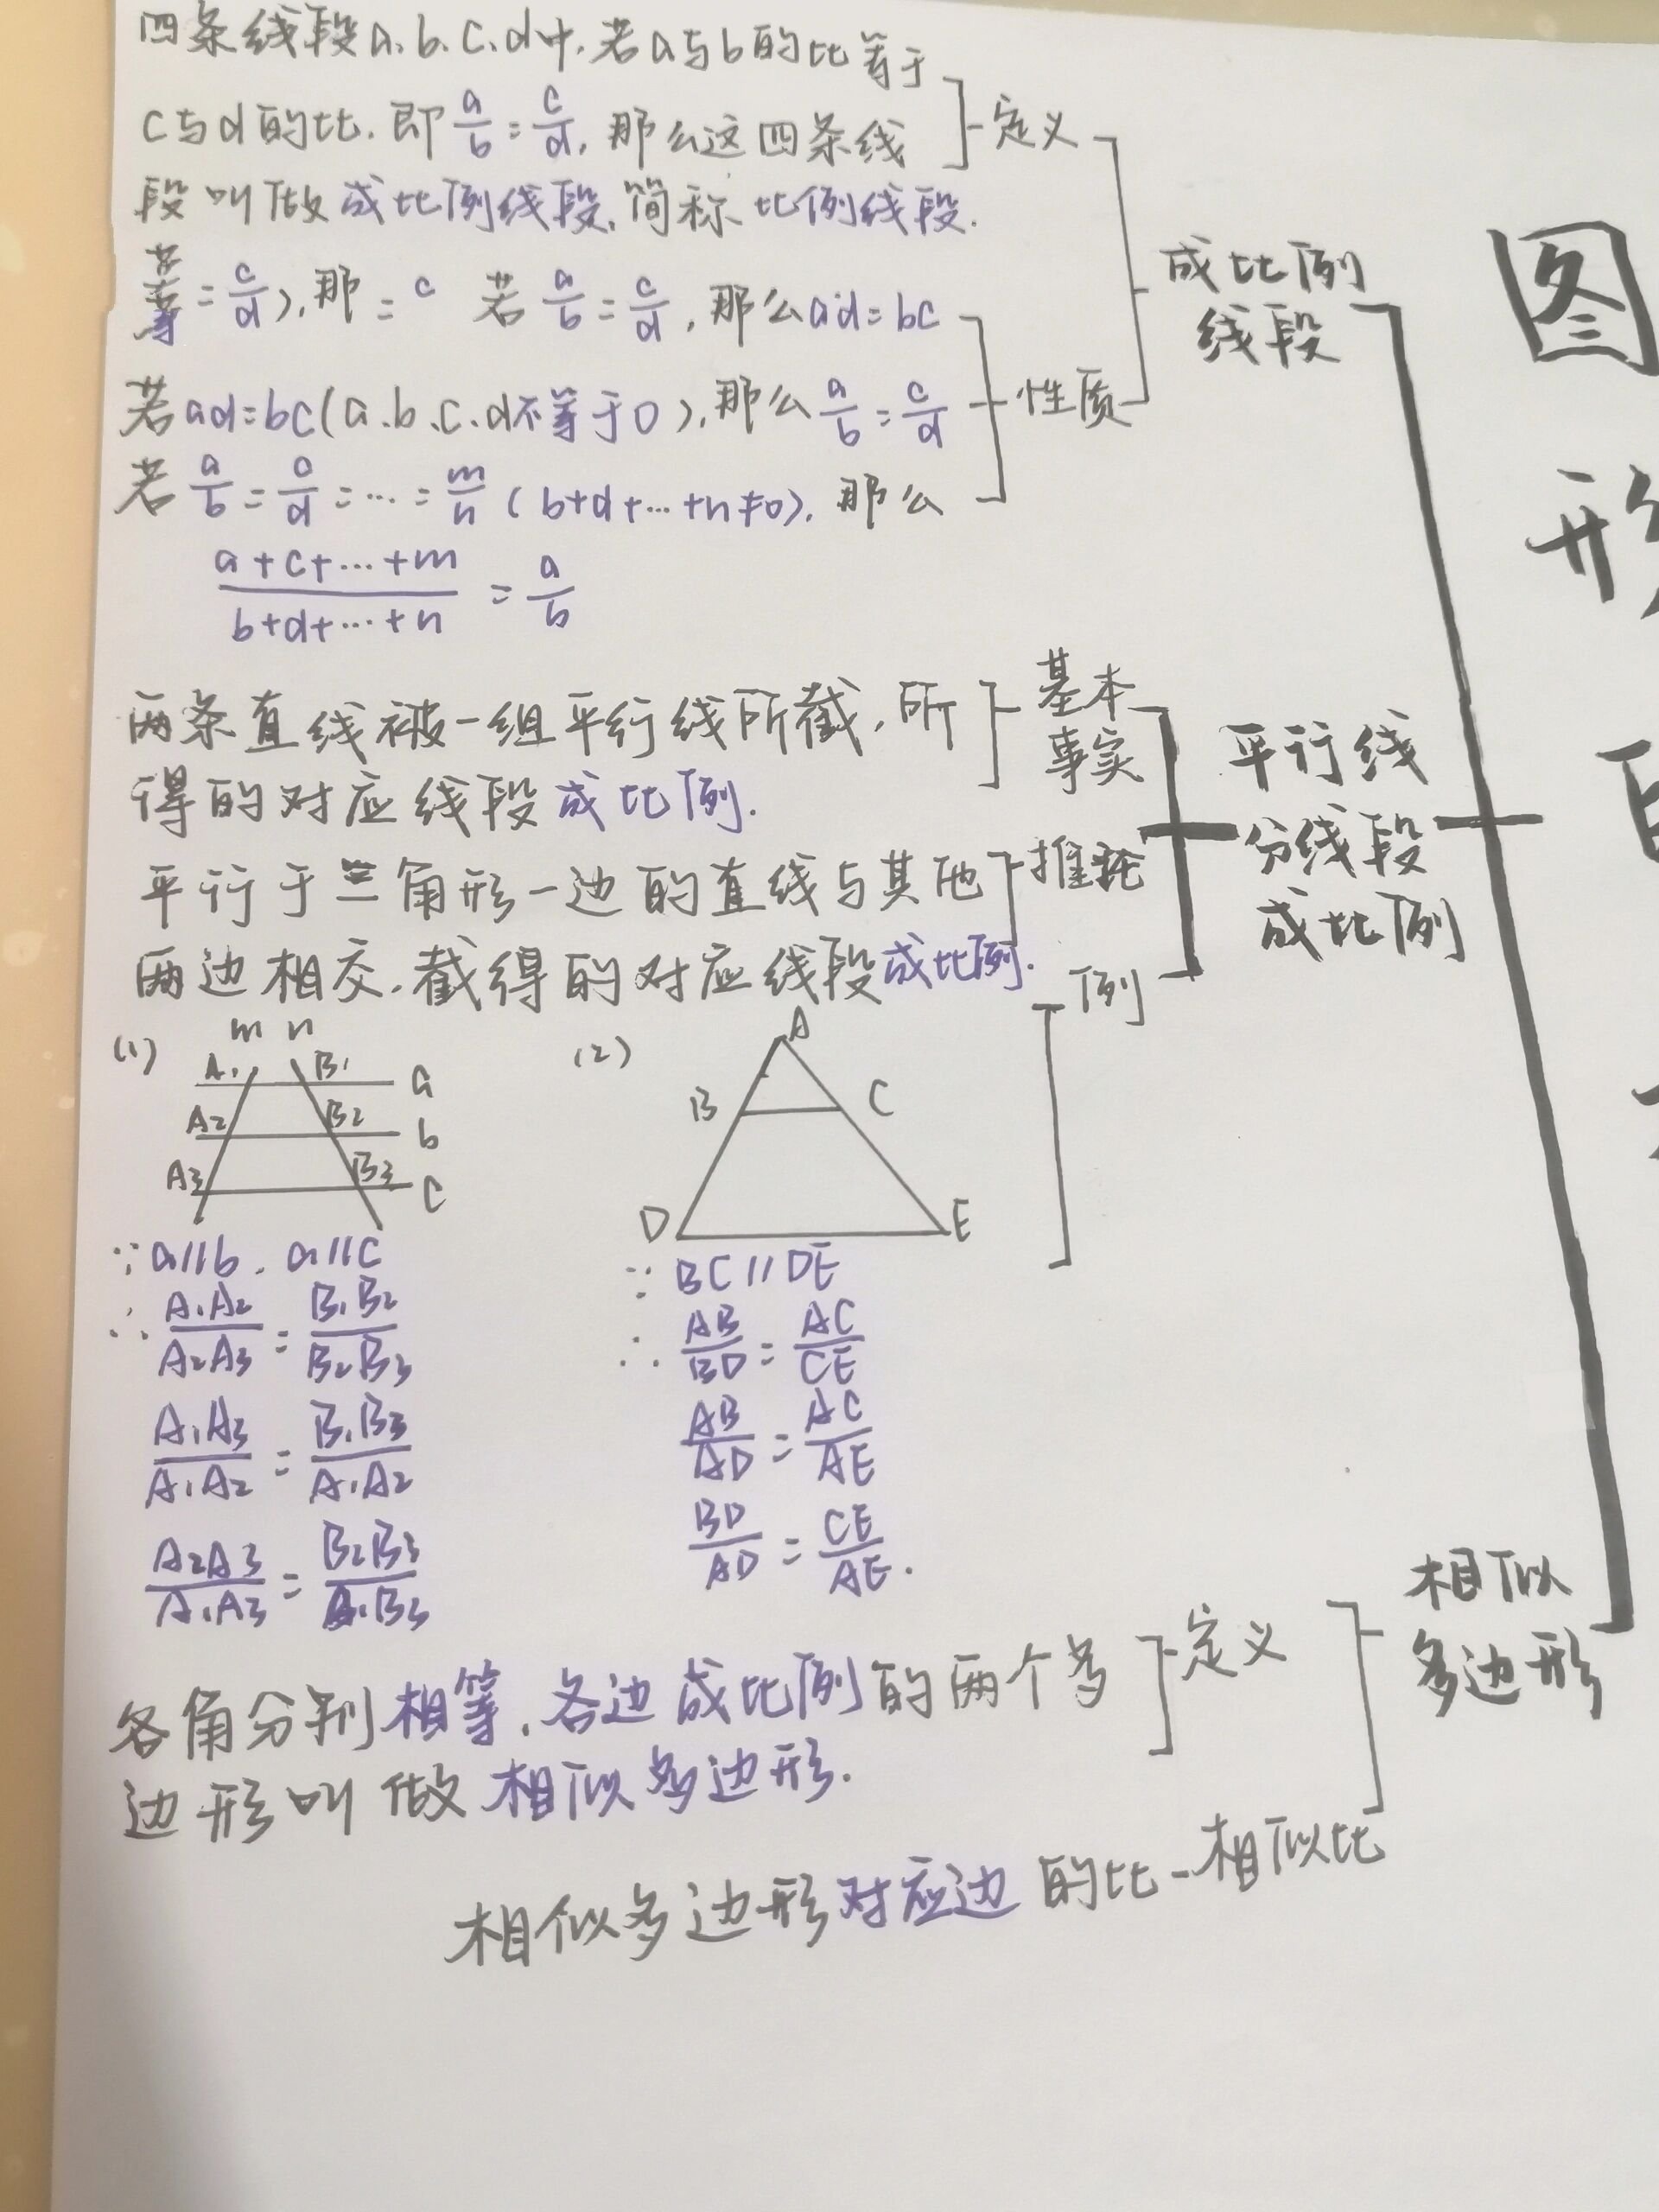 四条线段a、b、c、d中,若a与b的比等于
c与d的比,即a/b=c/d,那么这四条线
段叫做成比例线段,简称比例线段.
定义
=c/d),那=c 若a/b=c/d,那么ad=bc
若ad=bc(a、b、c、d不等于0),那么a/b=c/d
若a/b=c/d=…=m/n(b+d+…+n≠0),那么
(a+c+…+m)/(b+d+…+n)=a/b
性质
成比例
线段
图
形
两条直线被一组平行线所截,所
得的对应线段成比例.
基本
事实
平行于三角形一边的直线与其他
两边相交,截得的对应线段成比例.
推论
例
平行线
分线段
成比例
(1)
m n
A1 B1 a
A2 B2 b
A3 B3 c
∵a∥b,a∥c
∴A1A2/A2A3=B1B2/B2B3
A1A3/A1A2=B1B3/A1A2
A2A3/A1A3=B2B3/B1B3
(2)
A
B C
D E
∵BC∥DE
∴AB/BD=AC/CE
AB/AD=AC/AE
BD/AD=CE/AE.
各角分别相等,各边成比例的两个多
边形叫做相似多边形.
定义
相似多边形对应边的比-相似比
相似
多边形